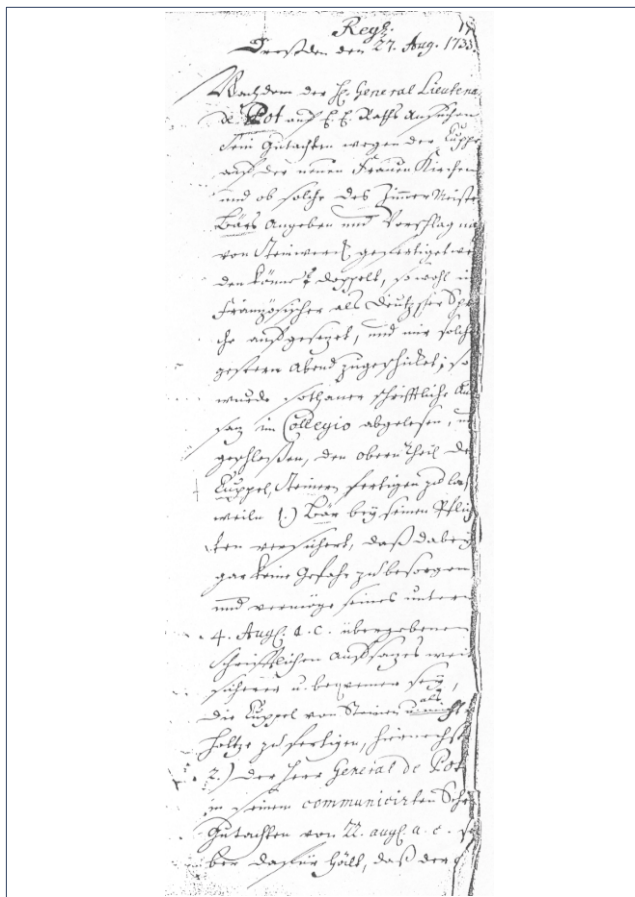 Regs. 17
Dreßden den 27. Aug. 1733.
Nachdem der H. General Lieutena
de Bot auf E. E. Raths Ansuchen
sein Gutachten wegen der Kuppe
auf der neuen Frauen Kirchen
und ob solche des Zimmer Meiste
Bärs Angeben und Vorschlag na
von Steinwerck gefertiget wer
den könne, doppelt, so wohl in
Französischer als Deutzscher Spra
che aufgesezet, und mir solche
gestern Abend zugeschicket; so
wurde sothaner schrifftliche Auf
saz im Collegio abgelesen, u
geschloßen, den obern Theil de
Kuppel, Steinern fertigen zu laß
weiln 1.) Bär bey seinen Pflich
ten versichert, daß dabey
gar keine Gefahr zu besorgen
und vermöge seines unterm
4. Aug. a. c. übergebenen
schrifftlichen Aufsazes weit
sicherer u. beqvemer sey,
die Kuppel von Steinen als
Holtze zu fertigen, hiernechst
2.) der Herr General de Bot
in seinem communicirten Schr
Gutachten von 22. aug. a. c. se
ber dafür hält, daß der